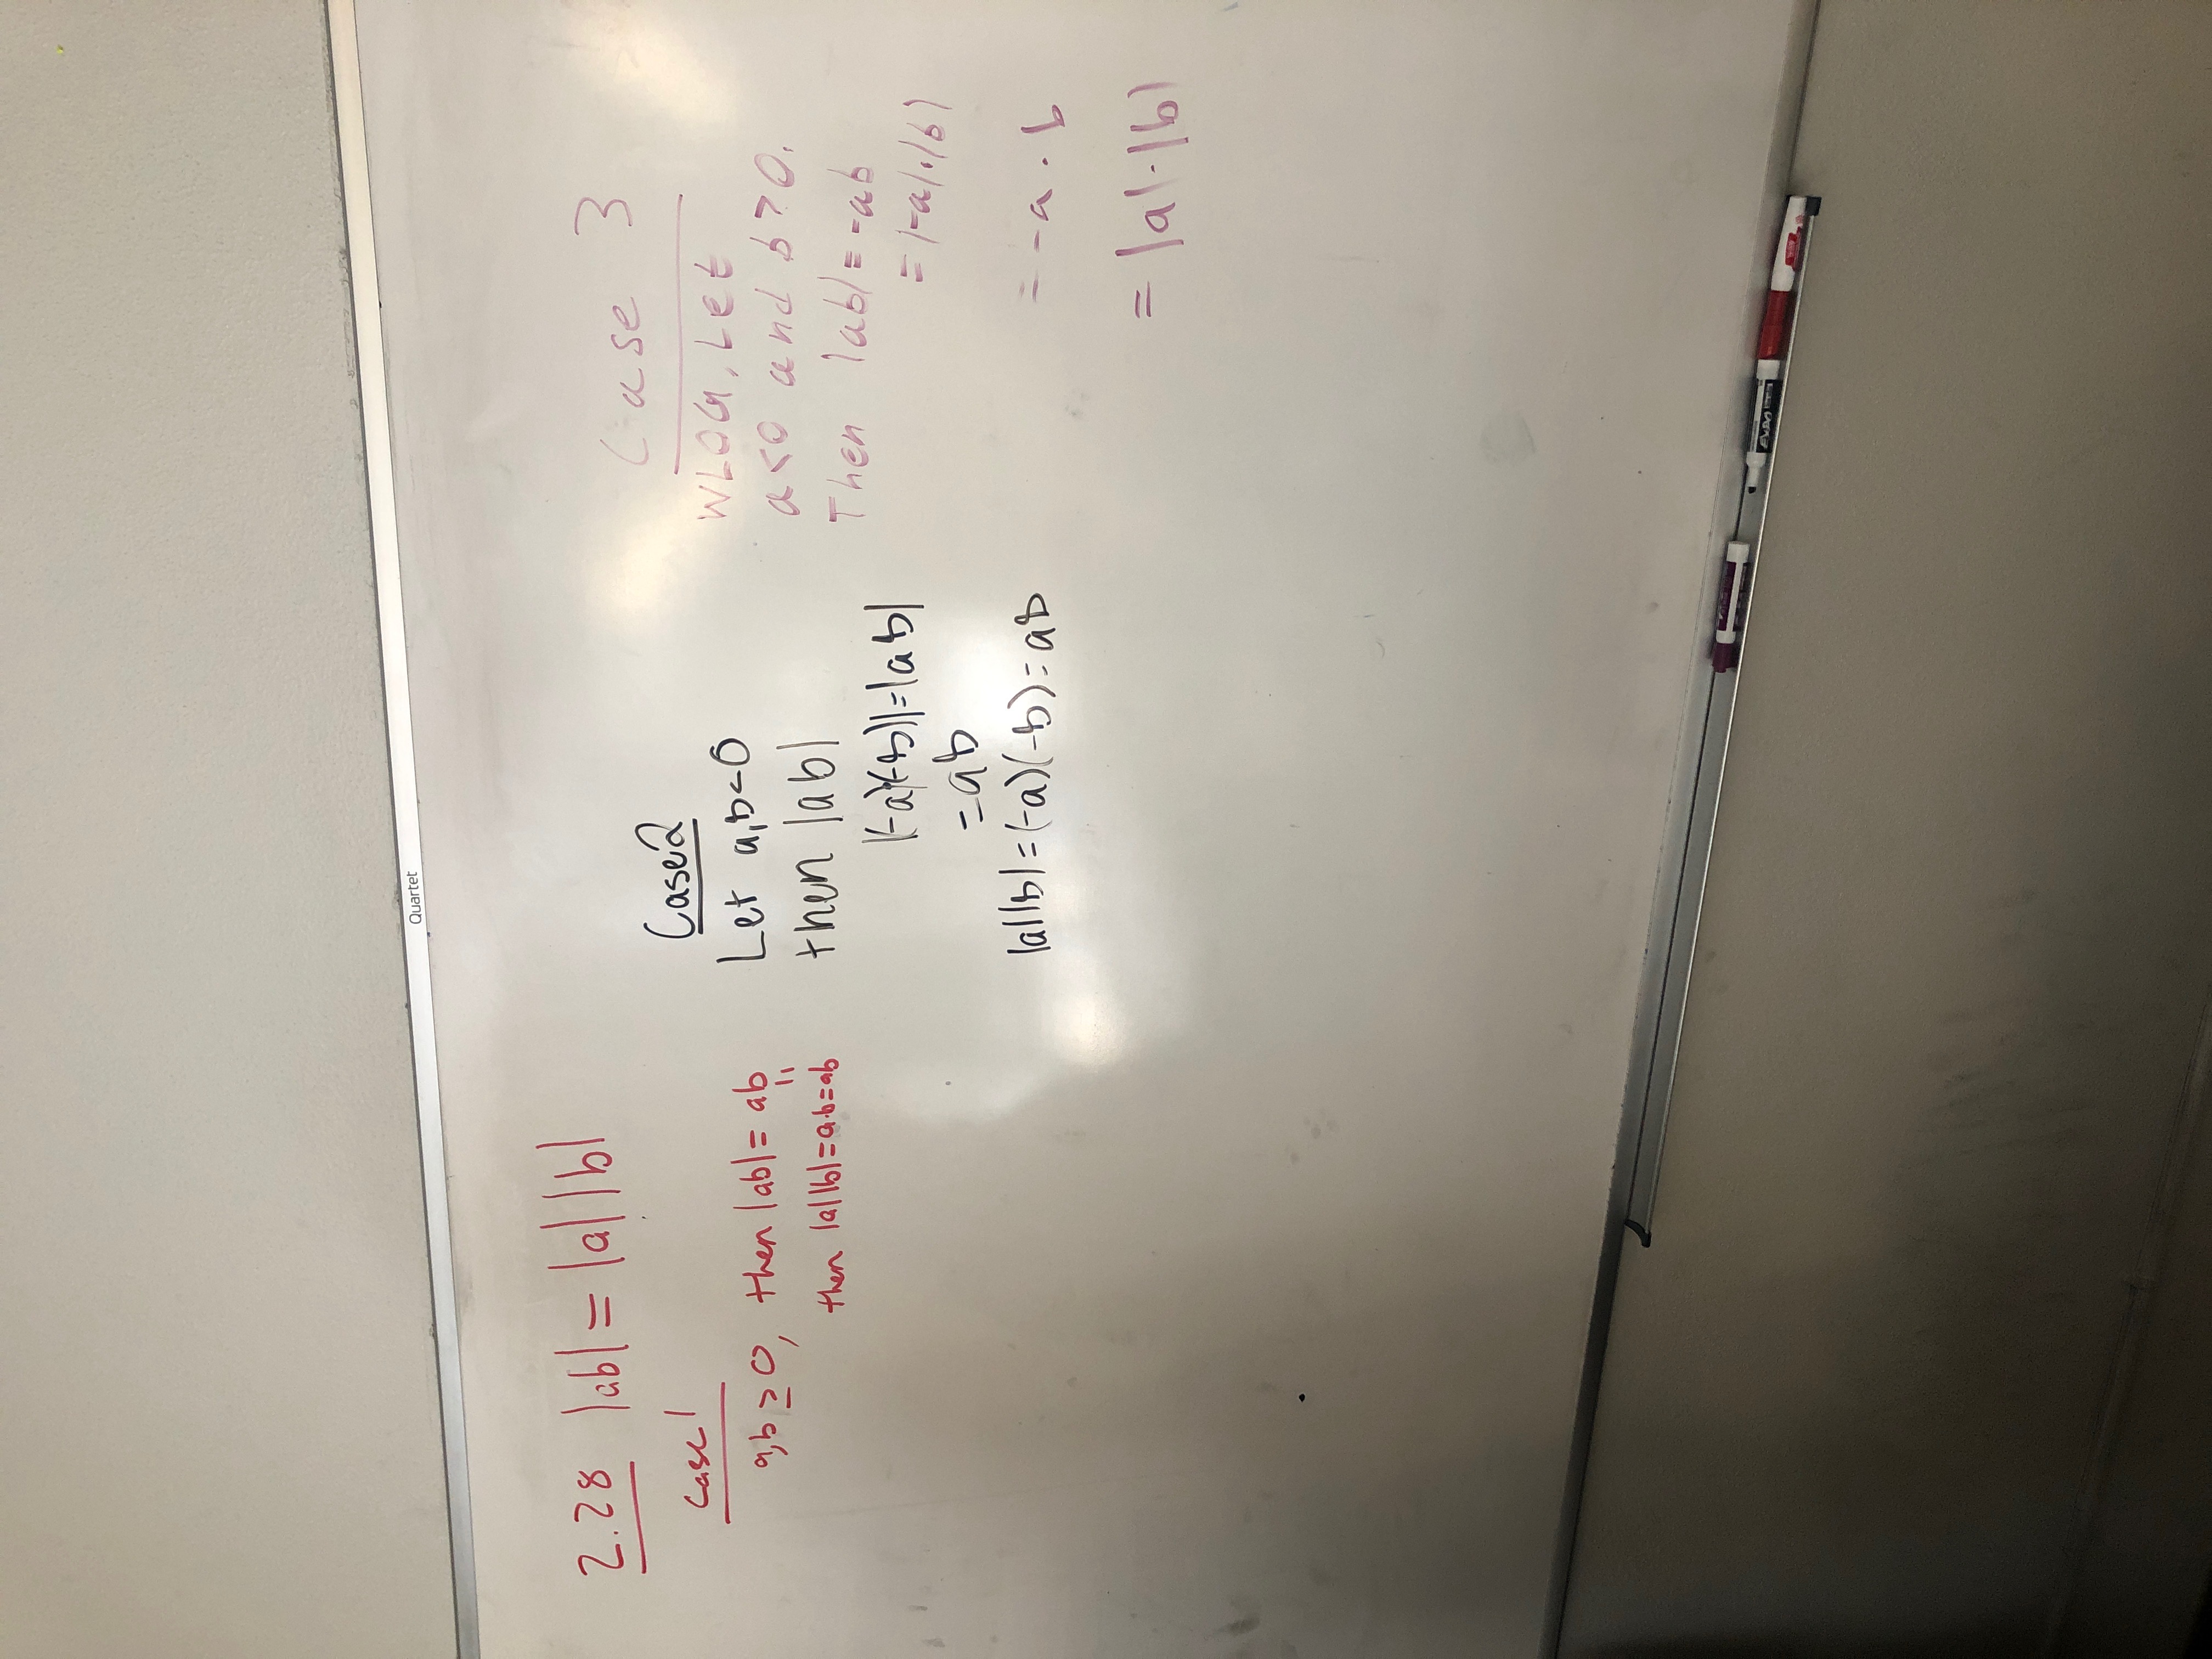 Quartet
2.28 |ab| = |a| |b|
Case 1
a,b ≥ 0, then |ab| = ab
||
then |a||b| = a·b = ab
Case 2
Let a,b<0
then |ab|
|(-a)(-b)| = |ab|
= ab
|a||b| = (-a)(-b) = ab
Case 3
WLOG, Let
a<0 and b>0.
Then |ab| = -ab
= |-a|·|b|
= -a · b
= |a|·|b|
EXPO